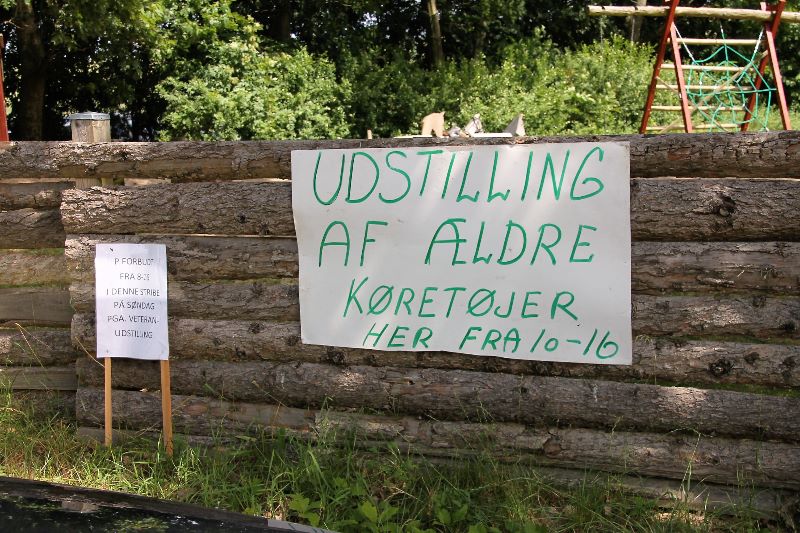 P FORBUDT
FRA 8-16
I DENNE STRIBE
PÅ SØNDAG
PGA. VETERAN-
UDSTILLING
UDSTILLING
AF ÆLDRE
KØRETØJER
HER FRA 10-16